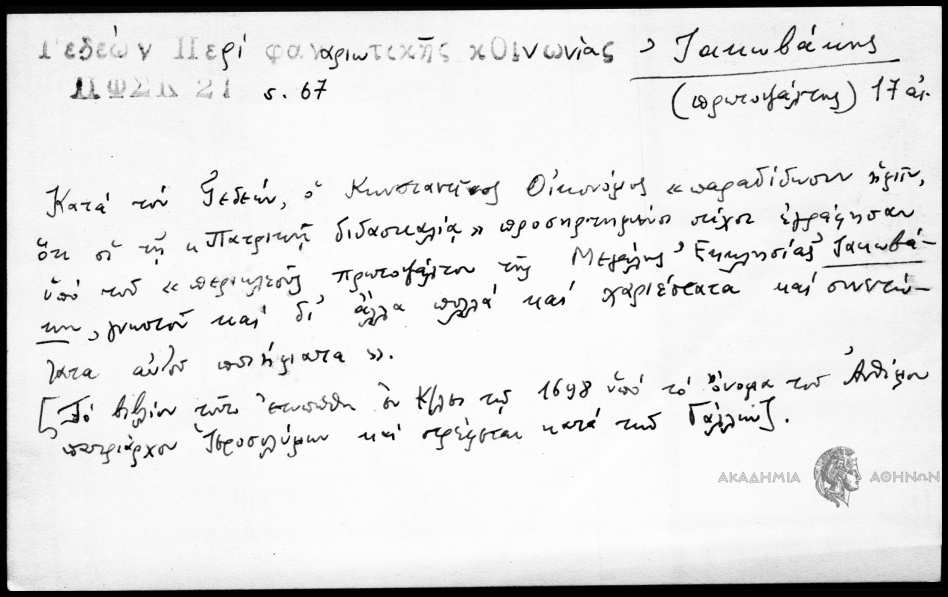 Γεδεών Περί φαναριωτικῆς κοινωνίας
Ἰακωβάκης
ΠΦΣΚ 21 s. 67
(πρωτοψάλτης) 17 αἰ.
Κατά τόν Γεδεών, ὁ Κωνσταντῖνος Οἰκονόμος «παραδίδωσιν ἡμῖν,
ὅτι οἱ τῇ «Πατρικῇ διδασκαλίᾳ» προσηρτημένοι στίχοι ἐγράφησαν
ὑπό τοῦ «περικλεοῦς πρωτοψάλτου τῆς Μεγάλης Ἐκκλησίας Ἰακωβά-
κη, γνωστοῦ καί δι' ἄλλα πολλά καί χαριέστατα καί συνετώ-
τατα αὐτοῦ ποιήματα».
[Τό βιβλίον τοῦτο ἐτυπώθη ἐν Κ/λει τῷ 1698 ὑπό τό ὄνομα τοῦ Ἀνθίμου
πατριάρχου Ἱεροσολύμων καί στρέφεται κατά τῶν Γάλλων].
ΑΚΑΔΗΜΙΑ ΑΘΗΝΩΝ